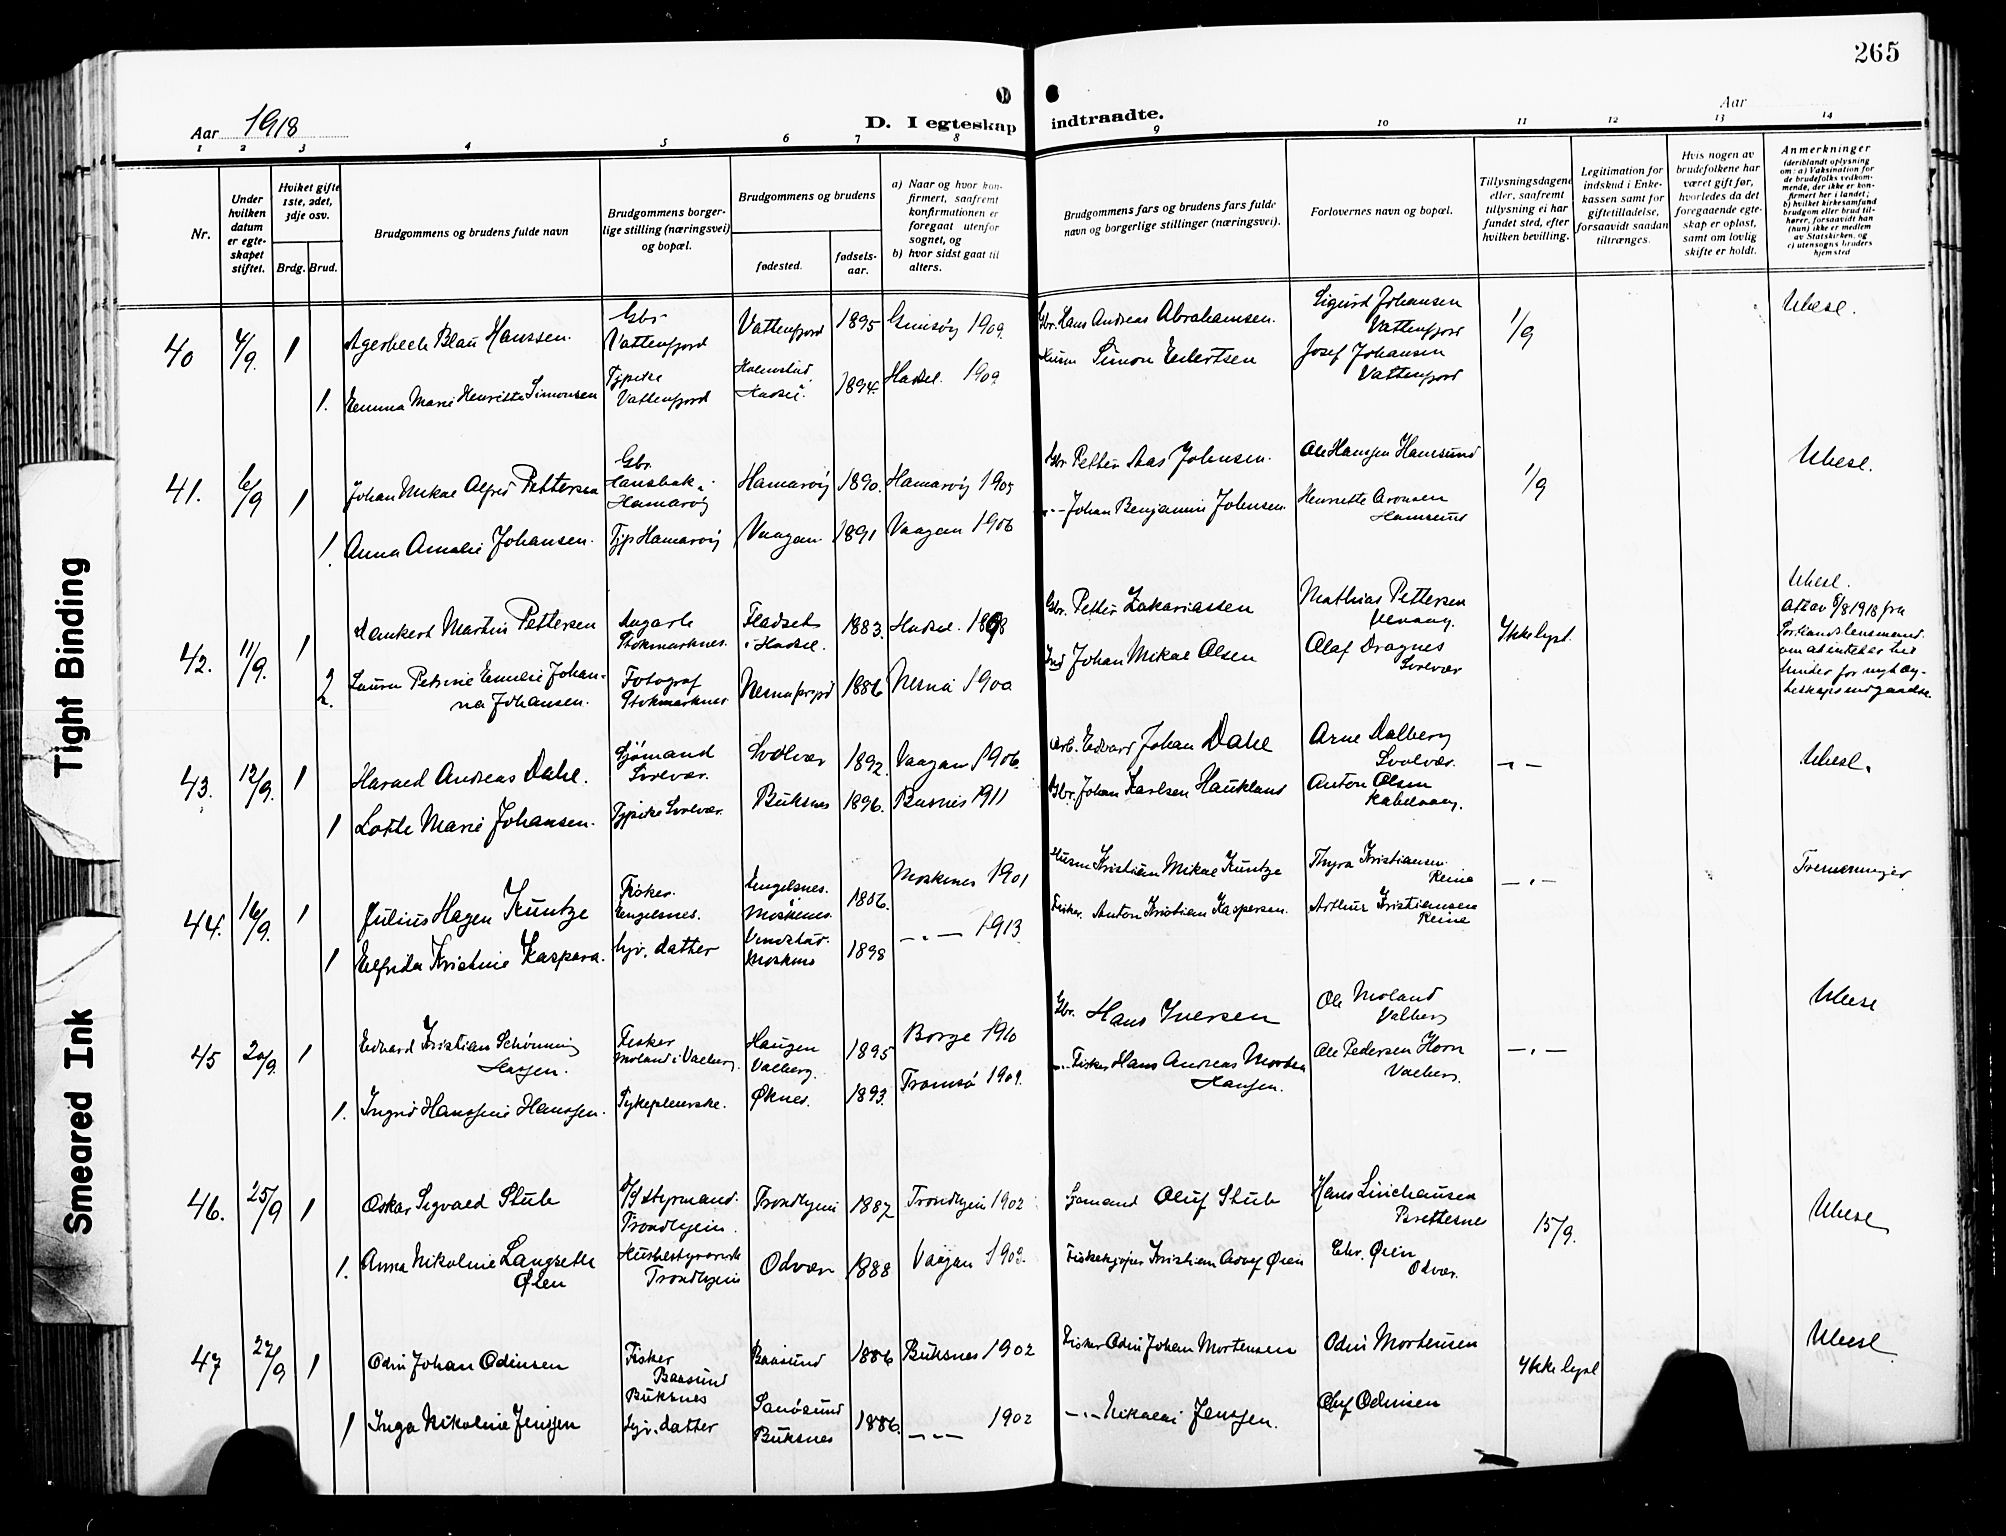 265
Aar 1918
D. I egteskap indtraadte.
Aar
1 2 3 4 5 6 7 8 9 10 11 12 13 14
Nr.
Under hvilken datum er egteskapet stiftet.
Hviket gifte 1ste, 2det, 3dje osv.
Brdg. Brud.
Brudgommens og brudens fulde navn
Brudgommens borgerlige stilling (næringsvei) og bopæl.
Brudgommens og brudens
fødested.
fødselsaar.
a) Naar og hvor konfirmert, saafremt konfirmationen er foregaat utenfor sognet, og
b) hvor sidst gaat til alters.
Brudgommens fars og brudens fars fulde navn og borgerlige stillinger (næringsvei).
Forlovernes navn og bopæl.
Tillysningsdagene eller, saafremt tillysning ei har fundet sted, efter hvilken bevilling.
Legitimation for indskud i Enkekassen samt for giftetilladelse, forsaavidt saadan tiltrænges.
Hvis nogen av brudefolkene har været gift før, hvorledes da det foregaaende egteskap er opløst, samt om lovlig skifte er holdt.
Anmerkninger
(deriblandt oplysning om: a) Vaksination for de brudefolks vedkommende, der ikke er konfirmert her i landet;
b) hvilket kirkesamfund brudgom eller brud tilhører, forsaavidt han (hun) ikke er medlem av Statskirken, og
c) utensogns bruders hjemsted
40 4/9. 1 Agerbech Blau Hanssen. Gbr Vattenfjord Vattenfjord 1895 Gimsøy 1909. Gbr. Hans Andreas Abrahamsen. Sigurd Johansen Vattenfjord 1/9 Ubesl.
1. Emma Marie Henriette Simonsen Tjpike Vattenfjord Holmstad Hadsel. 1894. Hadsel. 1909 Simon Edvertsen Josef Johansen Vattenfjord
41. 6/9 1 Johan Mikal Alfred Pettersen Gbr. Hansbak. Hamarøy Hamarøy 1890. Hamarøy 1905 Gbr Petter Aas Johnsen. Ole Hansen Hamsund 1/9 Ubesl.
1. Anna Amalie Johansen. Tjp Hamarøy Vaagan 1891 Vaagan 1906 - " - Johan Benjamin Johnsen. Henriette Aronsen Hamsund
42. 11/9. 1 Martin Pettersen Stokmarknes. Fladset i Hadsel. 1883. Hadsel. 1898 Gbr. Petter Zakariassen Mathias Pettersen Ikke lyst. Ubesl.
Att av 8/8 1918 fra Sortlands lensmand om at intet er til hinder for nyt egteskaps indgaaelse
2. Laura Petrine Emelie Johanna Johansen. Fotograf Stokmarknes. 1886 Nesna 1900 Ind Johan Mikal Olsen Olaf Dragnes Svolvær
43. 12/9. 1 Harald Andreas Dahl. Sjømand Svolvær. Svolvær 1892. Vaagan 1906. Arb. Edvard Johan Dahl Arne Dalberg Svolvær. - " - Ubesl.
1 Lotte Marie Johansen. Tjpike Svolvær. Buksnes 1896. Buksnes 1911 Gbr. Johan Karlsen Haukland Anton Olsen Kabelvaag.
44. 16/9. 1 Julius Hagen Kuntze Fisker. Engelsnes. Engelsnes. Moskenes. 1886. Moskenes 1901 Husm Kristian Mikal Kuntze Thyra Kristiansen Reine - " - Tremenninger
1 Elfrida Kristine Kaspara. hjv. datter Vindstad. Moskenes 1898 - " - 1913. Fisker. Anton Kristian Kaspersen. Arthur Kristiansen Reine
45 20/9. 1 Edvard Kristian Schønning Hagen. Fisker Moland i Valberg. Haugen Valberg. 1895 Borge 1910 Gbr. Hans Iversen Ole Moland Valberg - " - Ubesl
1. Ingrid Hansine Hanssen. Sykepleierske. Øknes. 1893. Tromsø 1909. - " - Fisker Hans Andreas Hansen. Ole Pedersen Horn Valberg.
46. 25/9 1 Oskar Sigvald Stub D/S styrmand. Trondhjem. Trondhjem 1887 Trondhjem 1902 Sjømand Oluf Stub Hans Linehausen Brettesnes 15/9. Ubesl
1. Anna Nikoline Langseth Øien Husbestyrerinde Trondhjem Odvær 1888 Vaagan 1903. Fiskekjøper Kristian Adolf Øien Chr. Øien Odvær.
47 27/9 1 Odin Johan Odinsen Fisker Baasund Buksnes Baasund 1886 Buksnes 1902 Fisker Odin Johan Mortensen Odin Mortensen Ikke lyst Ubesl
1 Inga Nikoline Jenssen hjv. datter Sandsund Buksnes 1886. - " - 1902 - " - Nikolai Jenssen. Oluf Odinsen
Tight Binding
Smeared Ink